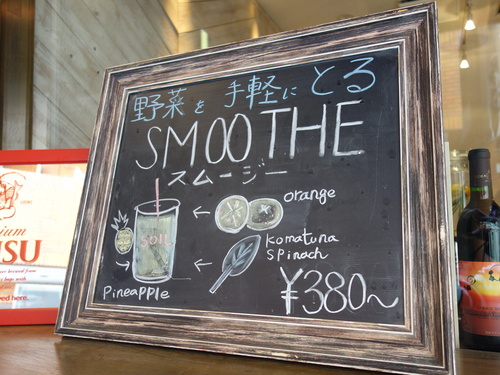 野菜を手軽にとる
SMOOTHE
スムージー
orange
SOIL
Komatuna
Spinach
Pineapple
¥380~
ium
SU